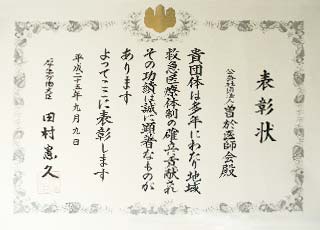 表彰状
公益社団法人 曽於医師会殿
貴団体は多年にわたり地域
救急医療体制の確立に貢献され
その功績は誠に顕著なものが
あります
よってここに表彰します
平成二十五年九月九日
厚生労働大臣 田村憲久